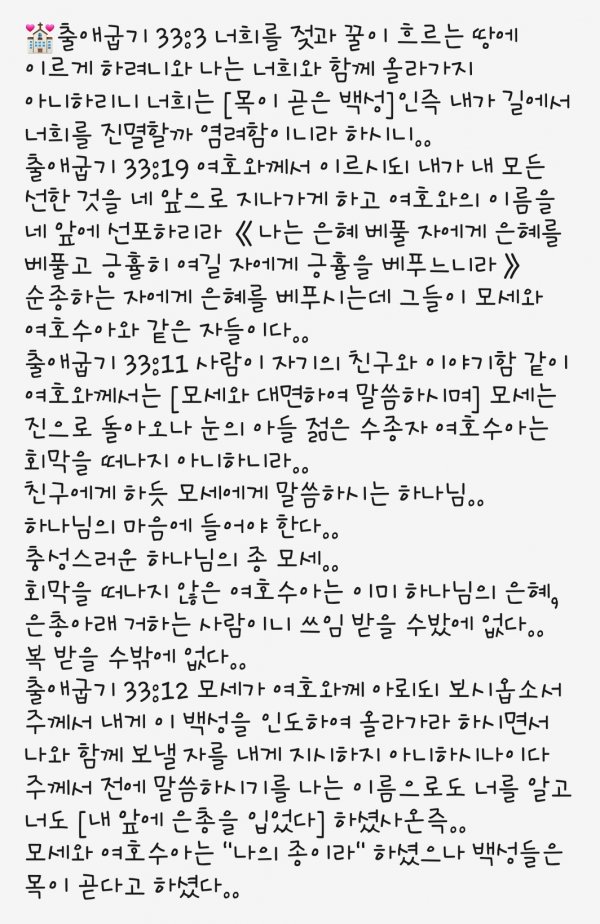 💒출애굽기 33:3 너희를 젖과 꿀이 흐르는 땅에
이르게 하려니와 나는 너희와 함께 올라가지
아니하리니 너희는 [목이 곧은 백성]인즉 내가 길에서
너희를 진멸할까 염려함이니라 하시니..
출애굽기 33:19 여호와께서 이르시되 내가 내 모든
선한 것을 네 앞으로 지나가게 하고 여호와의 이름을
네 앞에 선포하리라 《 나는 은혜 베풀 자에게 은혜를
베풀고 긍휼히 여길 자에게 긍휼을 베푸느니라 》
순종하는 자에게 은혜를 베푸시는데 그들이 모세와
여호수아와 같은 자들이다..
출애굽기 33:11 사람이 자기의 친구와 이야기함 같이
여호와께서는 [모세와 대면하여 말씀하시며] 모세는
진으로 돌아오나 눈의 아들 젊은 수종자 여호수아는
회막을 떠나지 아니하니라..
친구에게 하듯 모세에게 말씀하시는 하나님..
하나님의 마음에 들어야 한다..
충성스러운 하나님의 종 모세..
회막을 떠나지 않은 여호수아는 이미 하나님의 은혜,
은총아래 거하는 사람이니 쓰임 받을 수밨에 없다..
복 받을 수밖에 없다..
출애굽기 33:12 모세가 여호와께 아뢰되 보시옵소서
주께서 내게 이 백성을 인도하여 올라가라 하시면서
나와 함께 보낼 자를 내게 지시하지 아니하시나이다
주께서 전에 말씀하시기를 나는 이름으로도 너를 알고
너도 [내 앞에 은총을 입었다] 하셨사온즉..
모세와 여호수아는 "나의 종이라" 하셨으나 백성들은
목이 곧다고 하셨다..